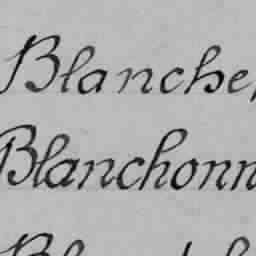 Blanche
Blanchonn